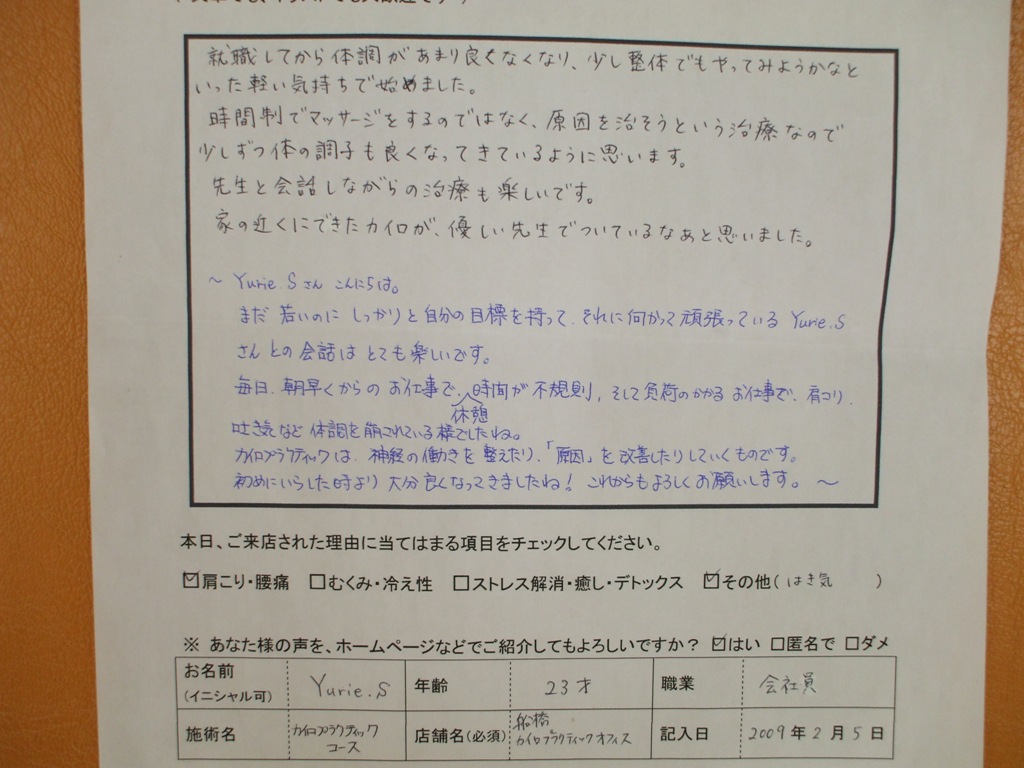 就職してから体調があまり良くなくなり、少し整体でもやってみようかなと
いった軽い気持ちで始めました。
時間制でマッサージをするのではなく、原因を治そうという治療なので
少しずつ体の調子も良くなってきているように思います。
先生と会話しながらの治療も楽しいです。
家の近くにできたカイロが、優しい先生でついているなぁと思いました。
～ Yurie.Sさん こんにちは。
まだ若いのに しっかりと自分の目標を持って、それに向かって頑張っている Yurie.S
さんとの会話は とても楽しいです。
毎日、朝早くからの お仕事で、休憩時間が不規則、そして負荷のかかる お仕事で、肩コリ、
吐き気など 体調を崩されている様でしたね。
カイロプラクティックは、神経の働きを整えたり、「原因」を改善したりしていくものです。
初めにいらした時より 大分良くなってきましたね! これからもよろしくお願いします。 ～
本日、ご来店された理由に当てはまる項目をチェックしてください。
☑肩こり・腰痛 □むくみ・冷え性 □ストレス解消・癒し・デトックス ☑その他( はき気 )
※ あなた様の声を、ホームページなどでご紹介してもよろしいですか? ☑はい □匿名で □ダメ
お名前(イニシャル可) Yurie.S 年齢 23才 職業 会社員
施術名 カイロプラクティックコース 店舗名(必須) 船橋カイロプラクティックオフィス 記入日 2009年2月5日